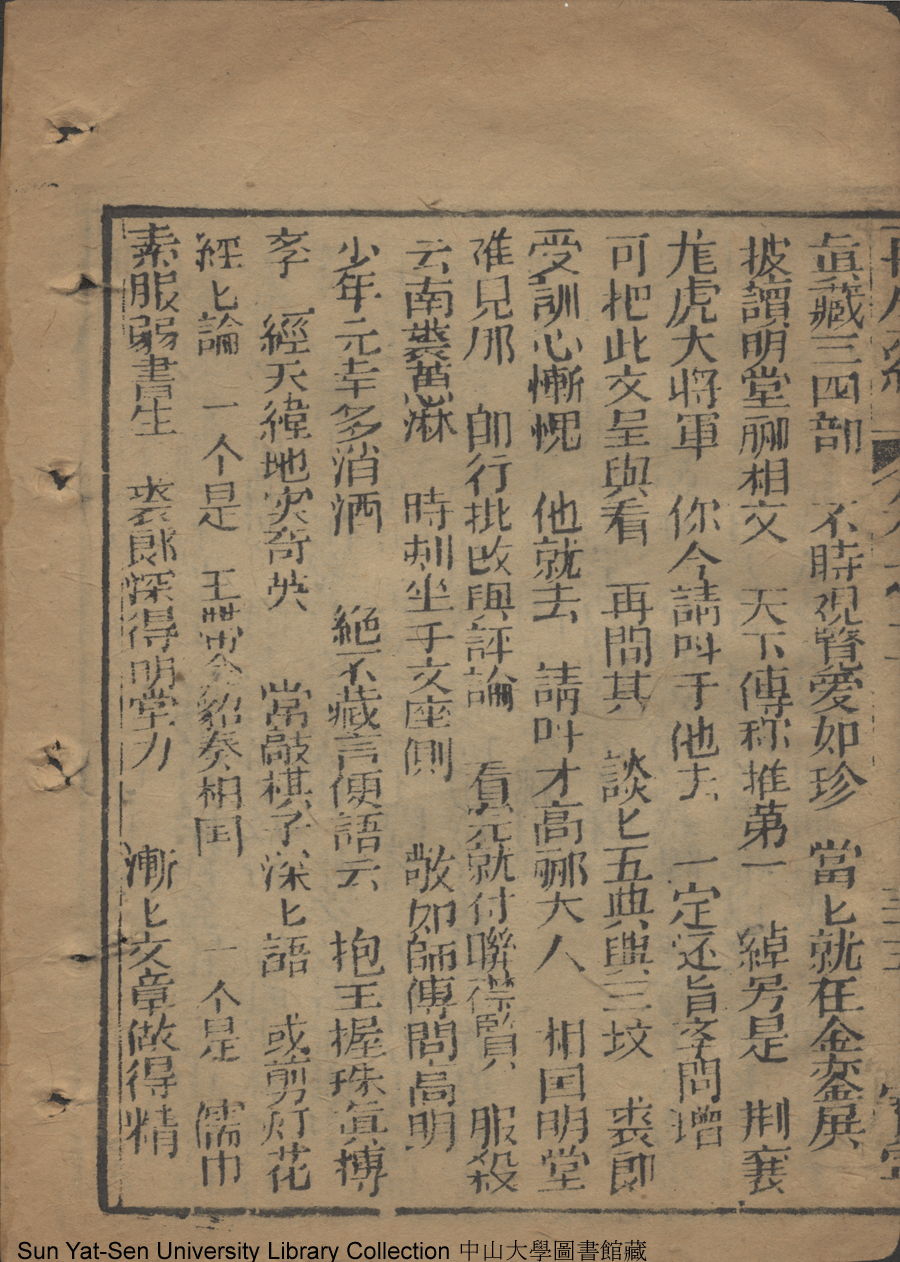 真藏三四部　不時視聴愛如珍　當匕就在金鑾展
披讀明堂酈相文　天下傳称推第一　綽号是　荆襄
龙虎大将軍　你今請叫于他去　一定还旨客問增
可把此文呈與看　再問其　談匕五典與三坟　裘郎
受訓心慚愧　他就去　請叫才高酈大人　相囯明堂
准見郎　即行批改與評論　看完就付聯襟賢　服殺
云南裘惠林　時刻坐于文座側　敬如師傅問高明
少年元宰多消洒　絶不藏言便語云　抱玉握珠真搏
李　經天緯地实奇英　常敲棋子深匕語　或剪灯花
經匕論　一个是　玉帶金貂奏相囯　一个是　儒巾
素服弱書生　裘郎深得明堂力　漸匕文章做得精
Sun Yat-Sen University Library Collection 中山大學圖書館藏